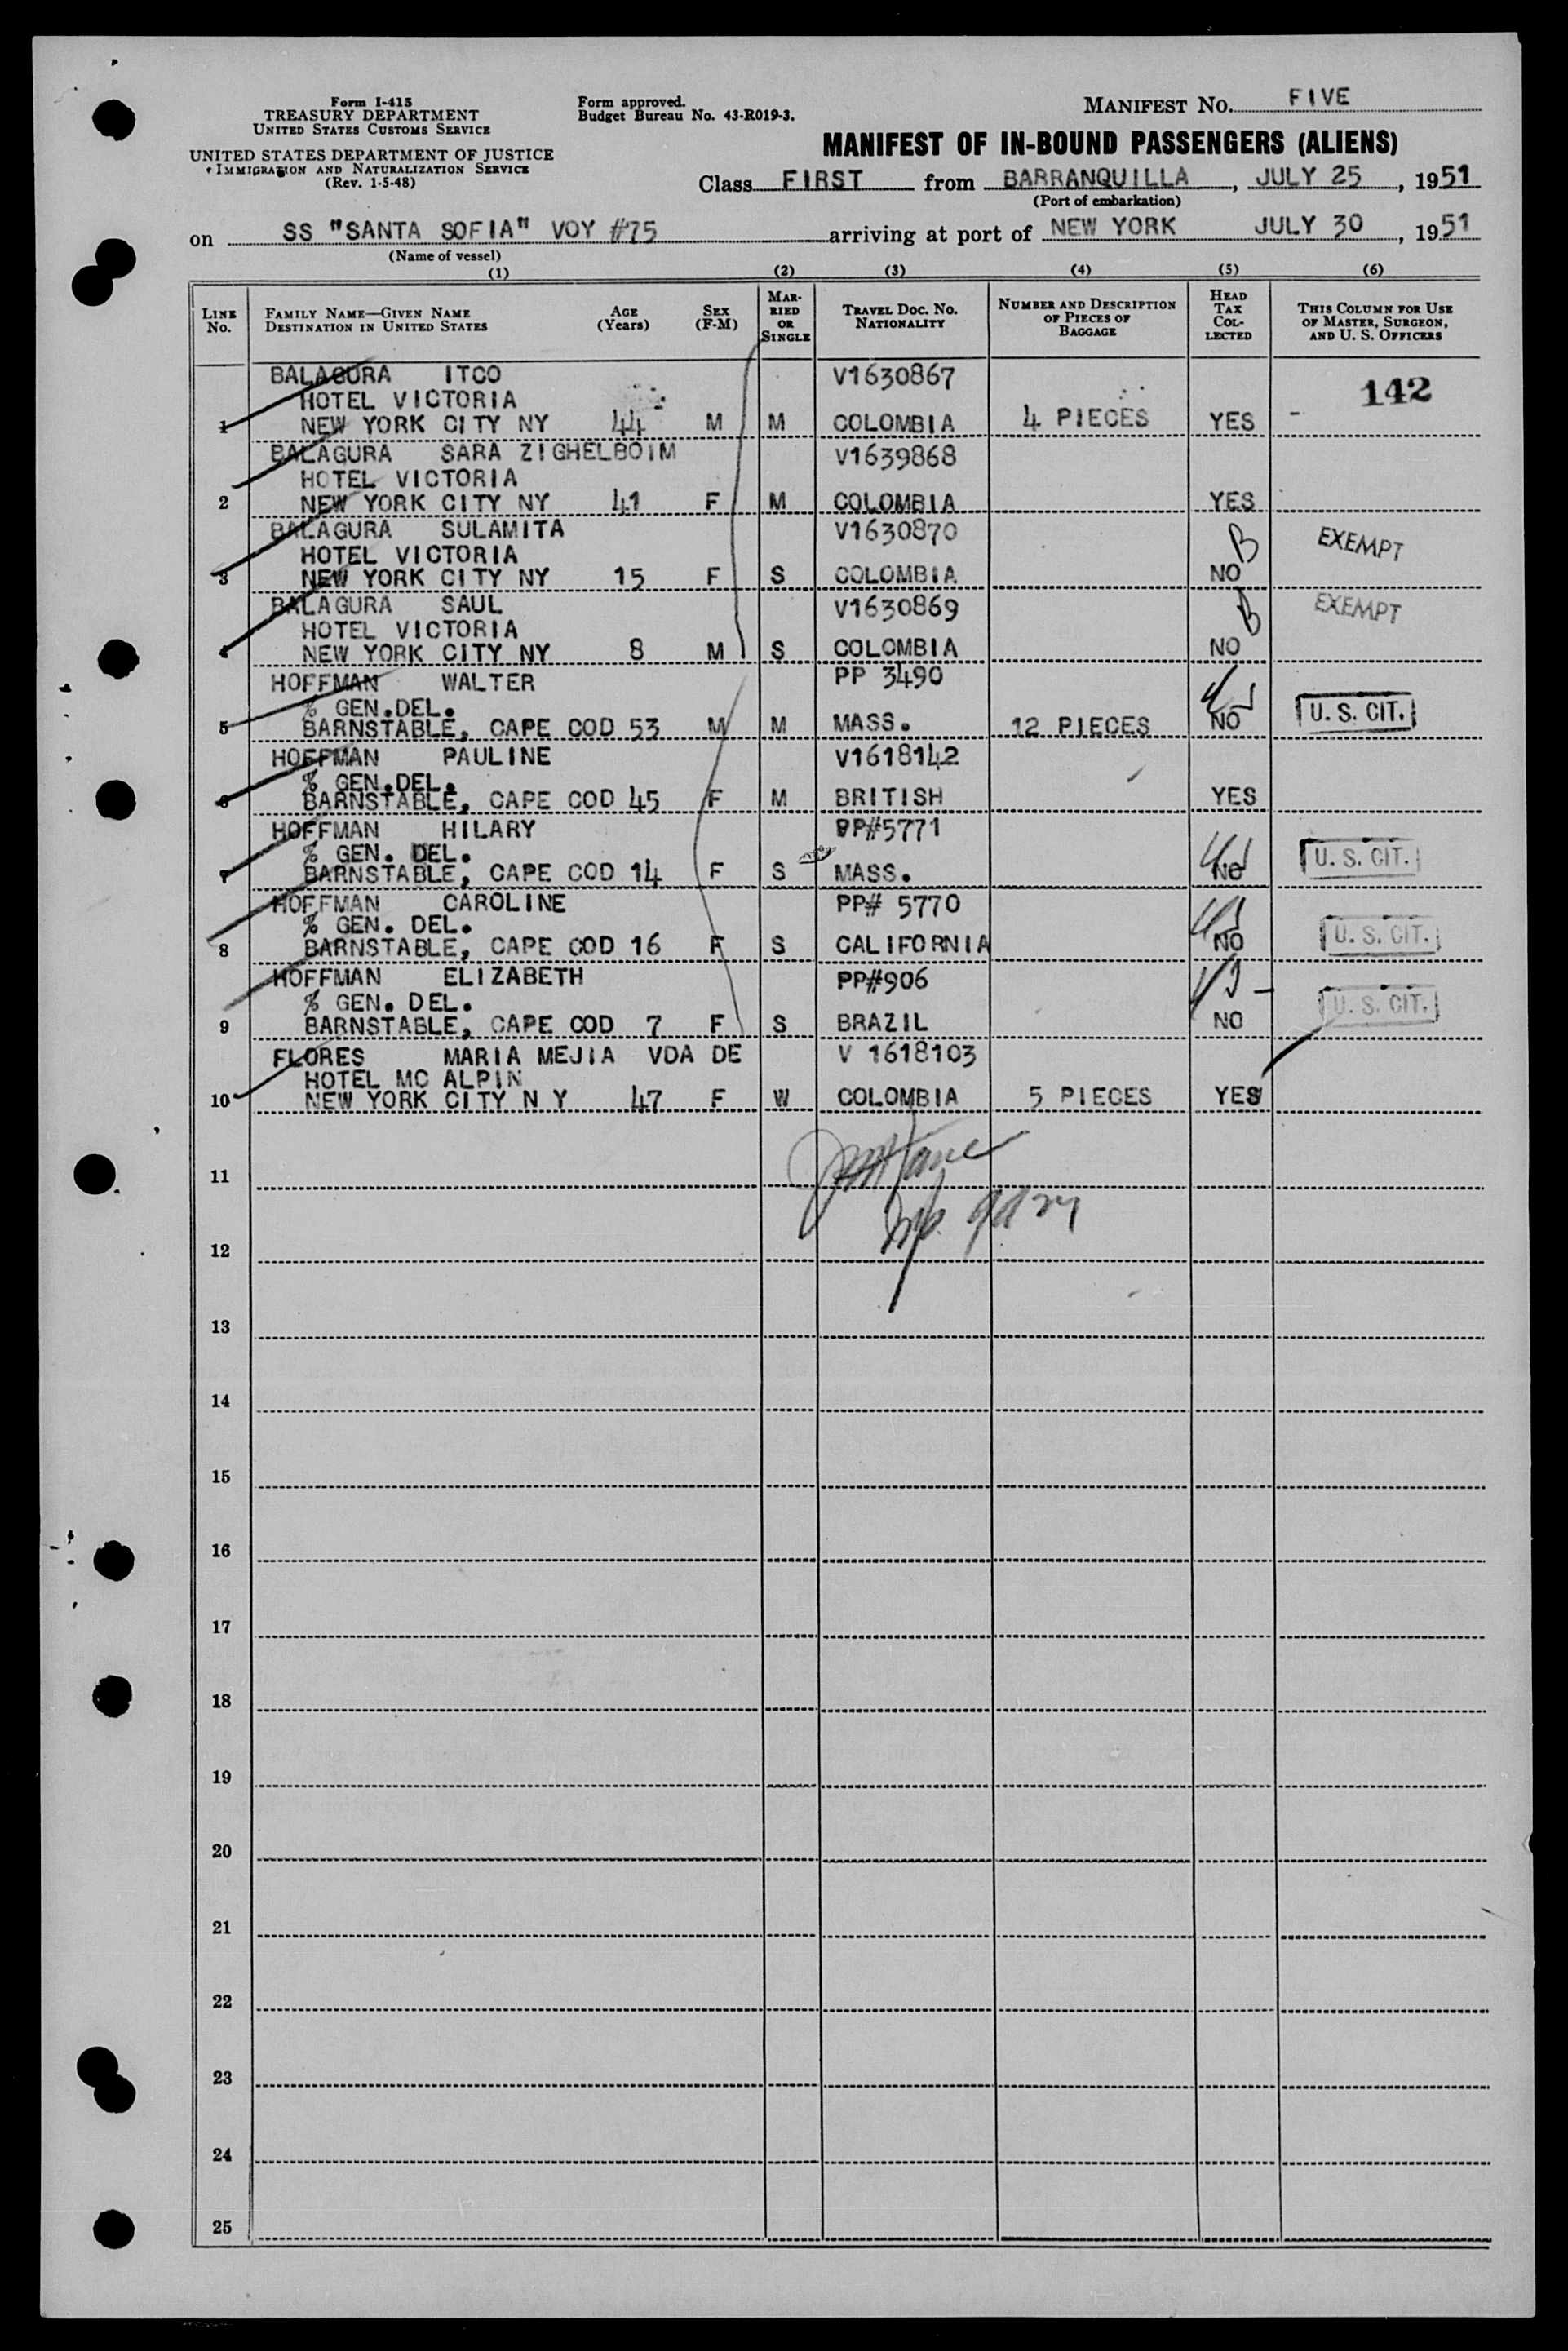 Form I-415
TREASURY DEPARTMENT
UNITED STATES CUSTOMS SERVICE
UNITED STATES DEPARTMENT OF JUSTICE
IMMIGRATION AND NATURALIZATION SERVICE
(Rev. 1-5-48)
Form approved.
Budget Bureau No. 43-R019-3.
MANIFEST No. FIVE
MANIFEST OF IN-BOUND PASSENGERS (ALIENS)
Class FIRST from BARRANQUILLA, JULY 25, 1951
(Port of embarkation)
on SS "SANTA SOFIA" VOY #75 arriving at port of NEW YORK JULY 30, 1951
(Name of vessel)
(1) (2) (3) (4) (5) (6)
LINE No. FAMILY NAME—GIVEN NAME DESTINATION IN UNITED STATES AGE (Years) SEX (F-M) MARRIED OR SINGLE TRAVEL DOC. No. NATIONALITY NUMBER AND DESCRIPTION OF PIECES OF BAGGAGE HEAD TAX COLLECTED THIS COLUMN FOR USE OF MASTER, SURGEON, AND U. S. OFFICERS
BALAGURA ITCO V1630867 142
HOTEL VICTORIA
1 NEW YORK CITY NY 44 M M COLOMBIA 4 PIECES YES
BALAGURA SARA ZIGHELBOIM V1639868
HOTEL VICTORIA
2 NEW YORK CITY NY 41 F M COLOMBIA YES
BALAGURA SULAMITA V1630870 B EXEMPT
HOTEL VICTORIA
3 NEW YORK CITY NY 15 F S COLOMBIA NO
BALAGURA SAUL V1630869 B EXEMPT
HOTEL VICTORIA
4 NEW YORK CITY NY 8 M S COLOMBIA NO
HOFFMAN WALTER PP 3490
% GEN.DEL. U. S. CIT.
5 BARNSTABLE, CAPE COD 53 M M MASS. 12 PIECES NO
HOFFMAN PAULINE V1618142
% GEN.DEL.
6 BARNSTABLE, CAPE COD 45 F M BRITISH YES
HOFFMAN HILARY PP#5771
% GEN. DEL. U. S. CIT.
7 BARNSTABLE, CAPE COD 14 F S MASS. NO
HOFFMAN CAROLINE PP# 5770
% GEN. DEL. U. S. CIT.
8 BARNSTABLE, CAPE COD 16 F S CALIFORNIA NO
HOFFMAN ELIZABETH PP#906
% GEN. DEL. U. S. CIT.
9 BARNSTABLE, CAPE COD 7 F S BRAZIL NO
FLORES MARIA MEJIA VDA DE V 1618103
HOTEL MC ALPIN
10 NEW YORK CITY N Y 47 F W COLOMBIA 5 PIECES YES
11
12
13
14
15
16
17
18
19
20
21
22
23
24
25